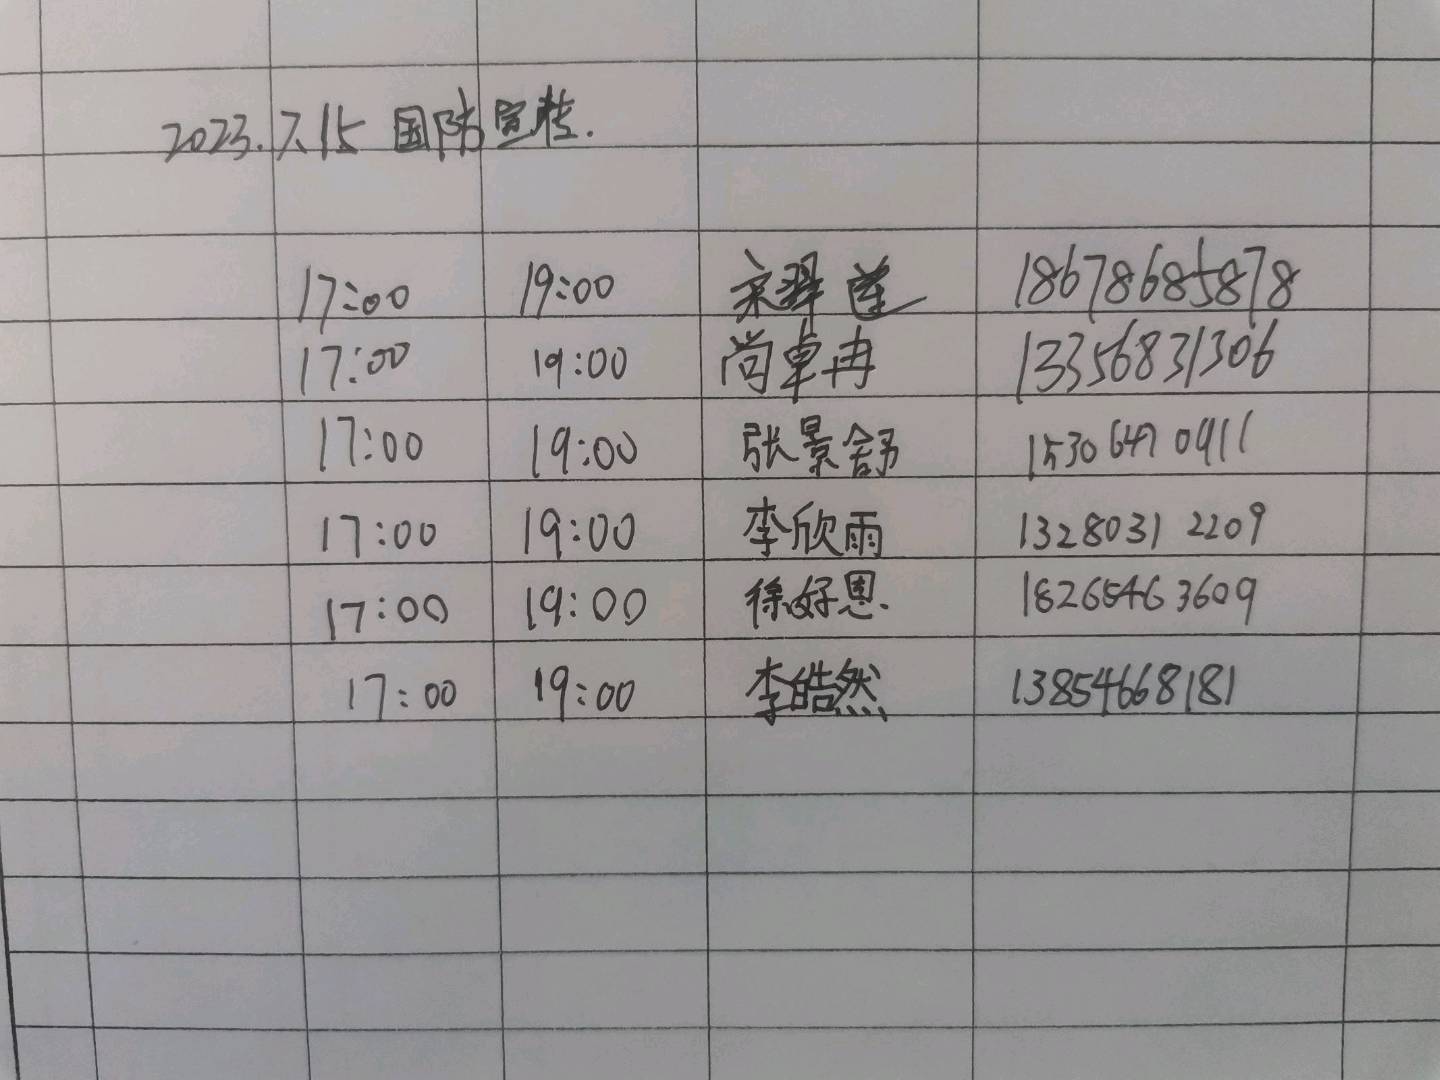 2023.7.15 国防宣传.
17:00 19:00 宋羿莲 18678685878
17:00 19:00 尚卓冉 13356831306
17:00 19:00 张景舒 15306470911
17:00 19:00 李欣雨 13280312209
17:00 19:00 徐好恩. 18265463609
17:00 19:00 李皓然 13854668181